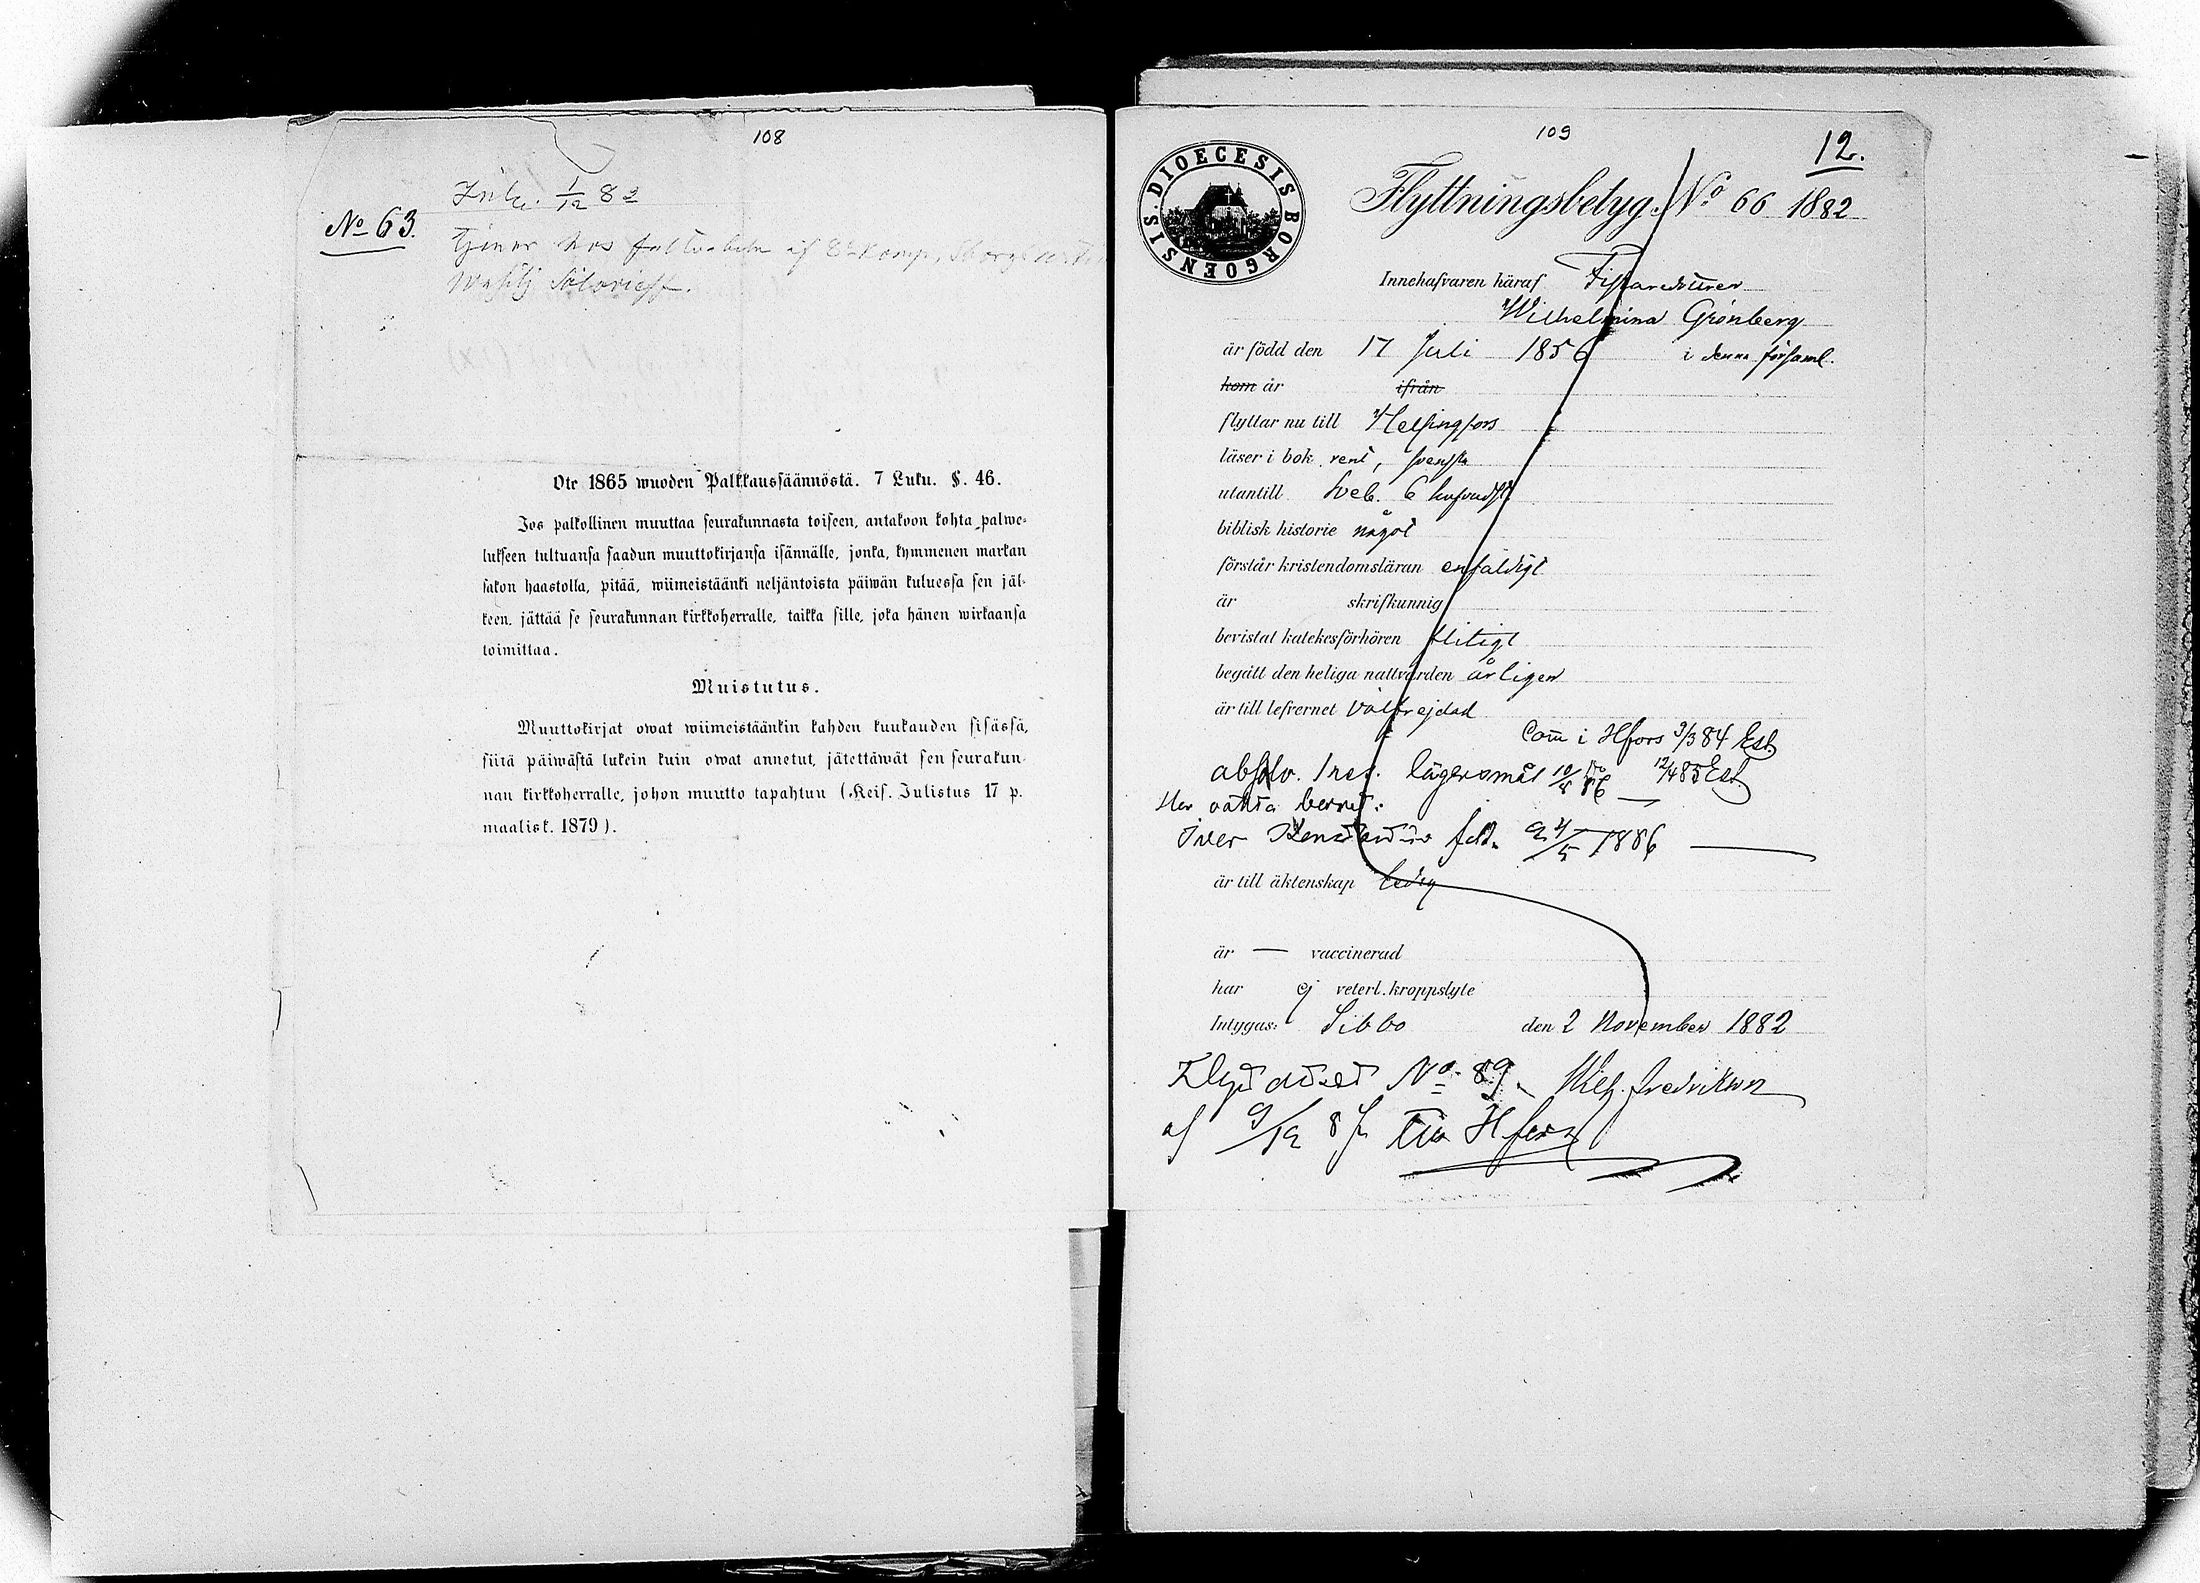 108
Ink. 1/12 82
No 63.
Tjenar hos af 8de Komp.
Ote 1865 wuoden Palkkaussäännöstä. 7 Luku. §. 46.
Jos palkollinen muuttaa seurakunnasta toiseen, antakoon kohta palwe-
lukseen tultuansa saadun muuttokirjansa isännälle, jonka, kymmenen markan
sakon haastolla, pitää, wiimeistäänki neljäntoista päiwän kuluessa sen jäl-
keen, jättää se seurakunnan kirkkoherralle, taikka sille, joka hänen wirkaansa
toimittaa.
Muistutus.
Muuttokirjat owat wiimeistäänkin kahden kuukauden sisässä,
siitä päiwästä lukein kuin owat annetut, jätettäwät sen seurakun-
nan kirkkoherralle, johon muutto tapahtuu (Keis. Julistus 17 p.
maalisk. 1879).
109
12.
DIOECESIS BORGOENSIS.
Flyttningsbetyg. No 66 1882
Innehafvaren häraf Fiskaredotter
Wilhelmina Grönberg
är född den 17 Juli 1856 i denna församl.
kom år ifrån
flyttar nu till Helsingfors
läser i bok rent, svenska
utantill Sveb. 6 hufvudst
biblisk historie något
förstår kristendomsläran enfaldigt
är skrifkunnig
bevistat katekesförhören flitigt
begått den heliga nattvarden årligen
är till lefvernet välfrejdad
Com i Hfors 9/3 84 Est.
absolv. lägersmål 10/5 86 12/4 85 Est.
Her oäkta barnet:
Iver fdd. 24/5 1886
är till äktenskap ledig
är — vaccinerad
har ej veterl. kroppslyte
Intygas: Sibbo den 2 November 1882
No 89. Wilh. Fredrikson
af 9/12 till Hfors